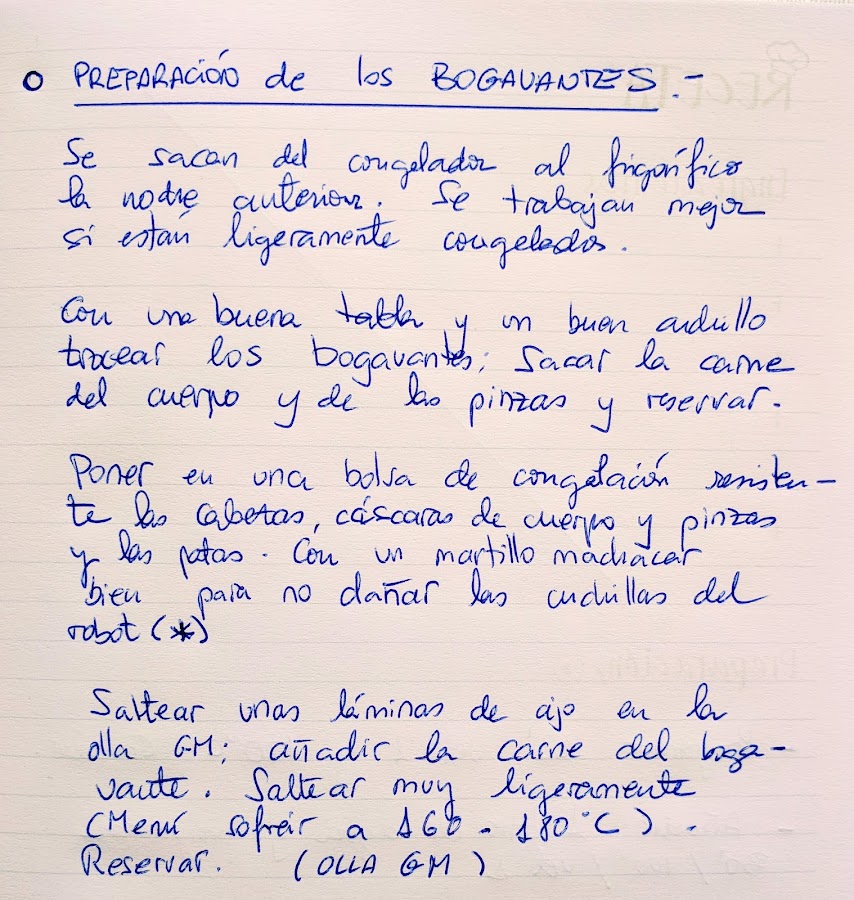 o PREPARACIÓN de los BOGAVANTES.-
Se sacan del congelador al frigorífico
la noche anterior. Se trabajan mejor
si están ligeramente congelados.
Con una buena tabla y un buen cuchillo
trocear los bogavantes; Sacar la carne
del cuerpo y de las pinzas y reservar.
Poner en una bolsa de congelación resisten-
te las cabezas, cáscaras de cuerpo y pinzas
y las patas. Con un martillo machacar
bien para no dañar las cuchillas del
robot (*)
Saltear unas láminas de ajo en la
olla GM; añadir la carne del boga-
vante. Saltear muy ligeramente
(Menú sofreír a 160 - 180°C).
Reservar. (OLLA GM)
RECETA
Preparación